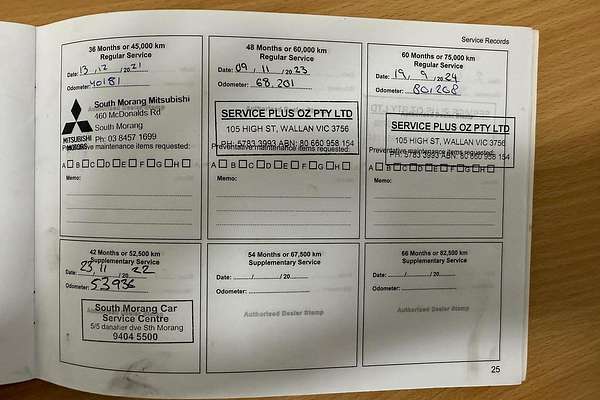 Service Records
36 Months or 45,000 km
Regular Service
Date: 13 / 12 / 20 21
Odometer: 40181
MITSUBISHI
MOTORS
South Morang Mitsubishi
460 McDonalds Rd
South Morang
Ph: 03 8457 1699
Preventative maintenance items requested:
A B C D E F G H
Memo:
48 Months or 60,000 km
Regular Service
Date: 09 / 11 / 20 23
Odometer: 68,201
Authorised Dealer Stamp
SERVICE PLUS OZ PTY LTD
105 HIGH ST, WALLAN VIC 3756
PH: 5783 3993 ABN: 80 660 958 154
Preventative maintenance items requested:
A B C D E F G H
Memo:
60 Months or 75,000 km
Regular Service
Date: 19 / 9 / 20 24
Odometer:
SERVICE PLUS OZ PTY LTD
105 HIGH ST, WALLAN VIC 3756
PH: 5783 3993 ABN: 80 660 958 154
Preventative maintenance items requested:
A B C D E F G H
Memo:
42 Months or 52,500 km
Supplementary Service
Date: 23 / 11 / 20 22
Odometer: 53936
South Morang Car
Service Centre
5/5 danalier dve Sth Morang
9404 5500
54 Months or 67,500 km
Supplementary Service
Date: / / 20
Odometer:
Authorised Dealer Stamp
66 Months or 82,500 km
Supplementary Service
Date: / / 20
Odometer:
Authorised Dealer Stamp
25